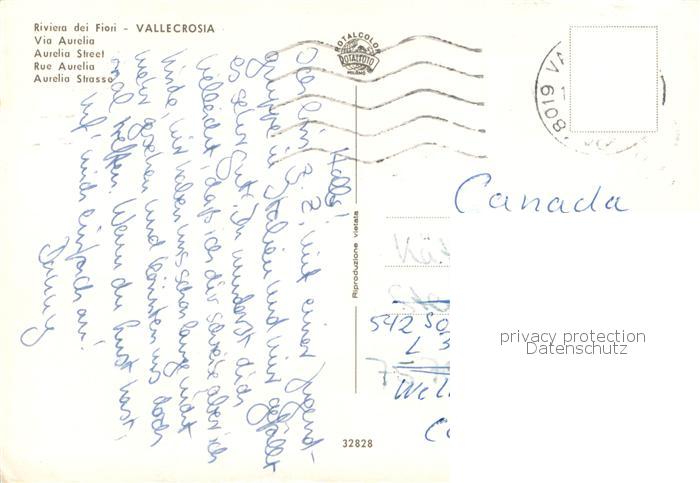 Riviera dei Fiori - VALLECROSIA
Via Aurelia
Aurelia Street
Rue Aurelia
Aurelia Strasse
ROTALCOLOR
ROTALFOTO
MILANO
18019 VA
Hallo!
Ich bin z. Z. mit einer Jugend-
gruppe in Italien und mir gefällt
es sehr gut. Du wunderst dich
vielleicht, daß ich dir schreibe aber ich
finde, wir haben uns schon lange nicht
mehr gesehen und könnten uns doch
mal treffen. Wenn du Lust hast,
ruf mich einfach an!
Riproduzione vietata
Canada
542 So
L 3
Wel
Ca
privacy protection
Datenschutz
32828